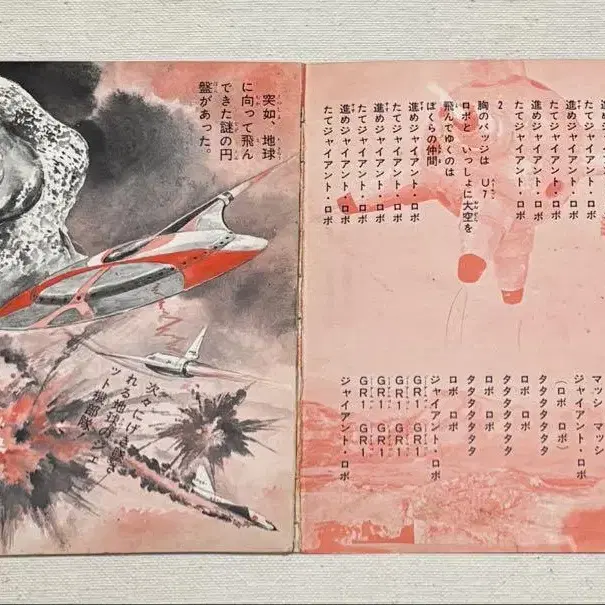 進め
たてジャイアント・
進めジャイアント・ロボ
たてジャイアント・ロボ
進めジャイアント・ロボ
たてジャイアント・ロボ
2
胸のバッジは U7
ロボと いっしょに大空を
飛んでゆくのは
ぼくらの仲間
進めジャイアント・ロボ
たてジャイアント・ロボ
進めジャイアント・ロボ
たてジャイアント・ロボ
進めジャイアント・ロボ
たてジャイアント・ロボ
マッシ マッシ
ジャイアント・ロボ
(ロボ ロボ)
タタタタタタタ
タタタタタタタ
ロボ ロボ
ロボ ロボ
ジャイアント・ロボ
GR1 GR1
GR1 GR1
GR1 GR1
GR1 GR1
ジャイアント・ロボ
突如、地球
に向って飛ん
できた謎の円
盤があった。
次々にげき
れる地球の
ット